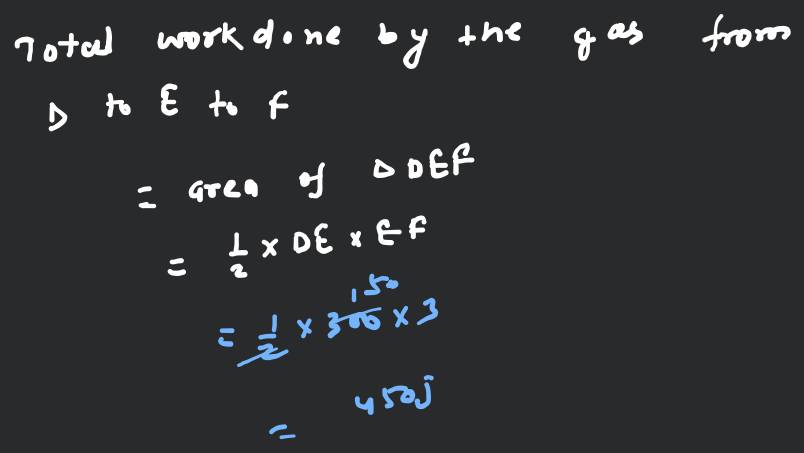 Total work done by the gas from
D to E to F
= area of Δ DEF
= 1/2 × DE × EF
= 1/2 × 300 150 × 3
= 450j